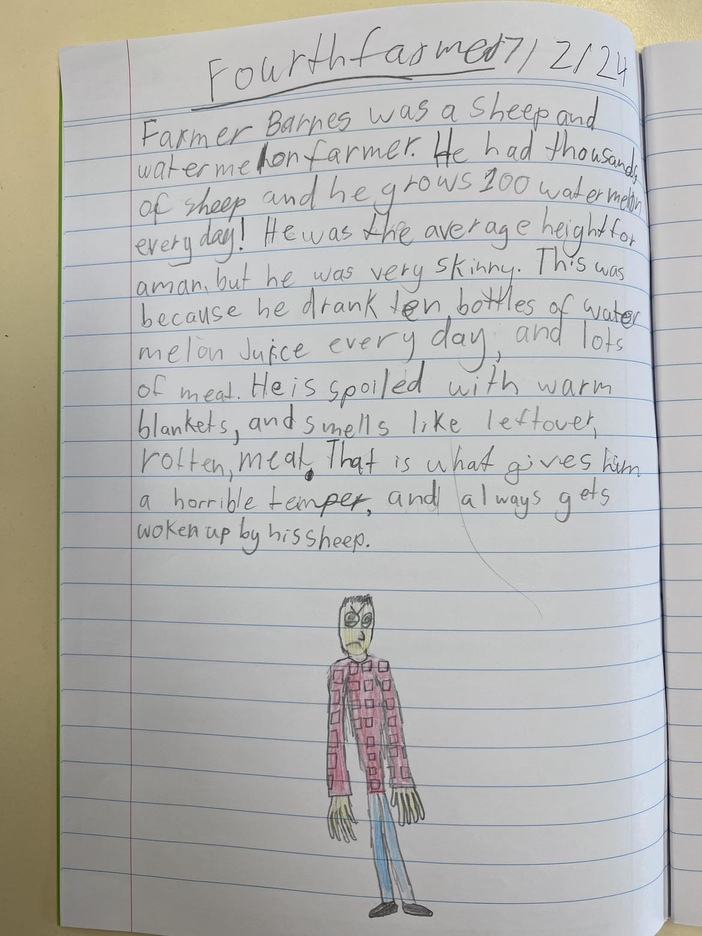 Fourthfarmer 7/2/24
Farmer Barnes was a sheep and
watermelon farmer. He had thousands
of sheep and he grows 100 watermelon
every day! He was the average height for
a man, but he was very skinny. This was
because he drank ten bottles of water
melon Juice every day, and lots
of meat. He is spoiled with warm
blankets, and smells like leftover,
rotten, meat. That is what gives him
a horrible temper, and always gets
woken up by his sheep.